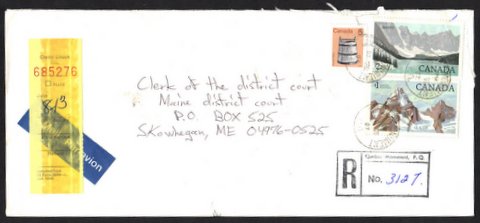 685276
8/3
avion
Clerk of the district court
Maine district court
P.O. BOX 525
Skowhegan, ME 04976-0525
Canada 5
CANADA
$1
CANADA
R
No. 3127.